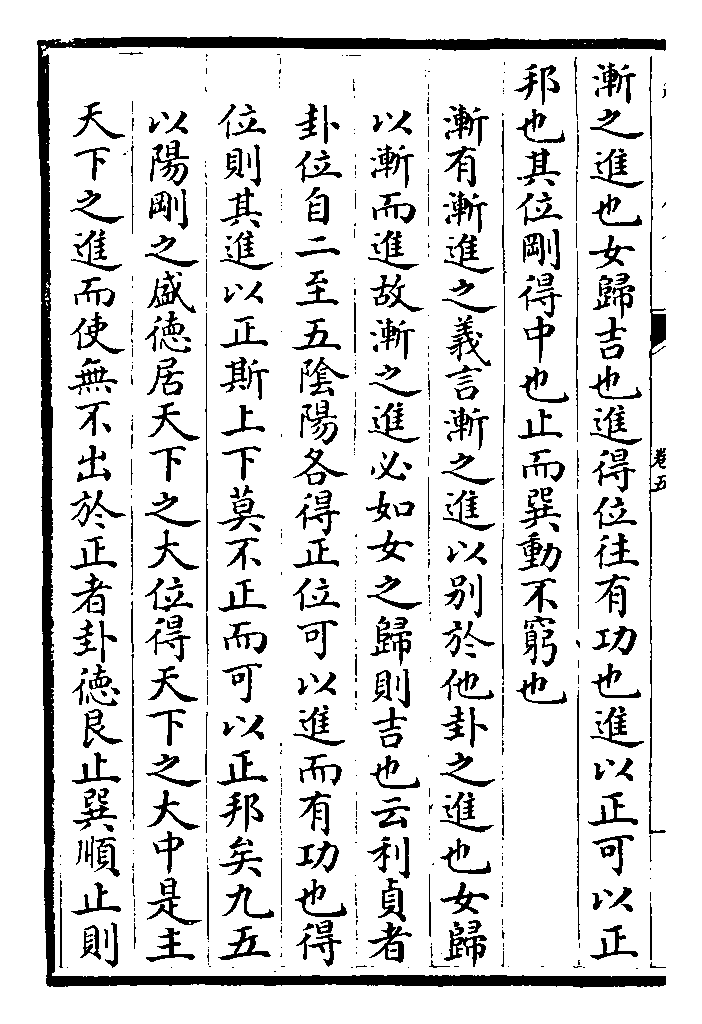 漸之進也女歸吉也進得位往有功也進以正可以正
邦也其位剛得中也止而巽動不窮也
漸有漸進之義言漸之進以别於他卦之進也女歸
以漸而進故漸之進必如女之歸則吉也云利貞者
卦位自二至五陰陽各得正位可以進而有功也得
位則其進以正斯上下莫不正而可以正邦矣九五
以陽剛之盛徳居天下之大位得天下之大中是主
天下之進而使無不出於正者卦徳艮止巽順止則
卷五